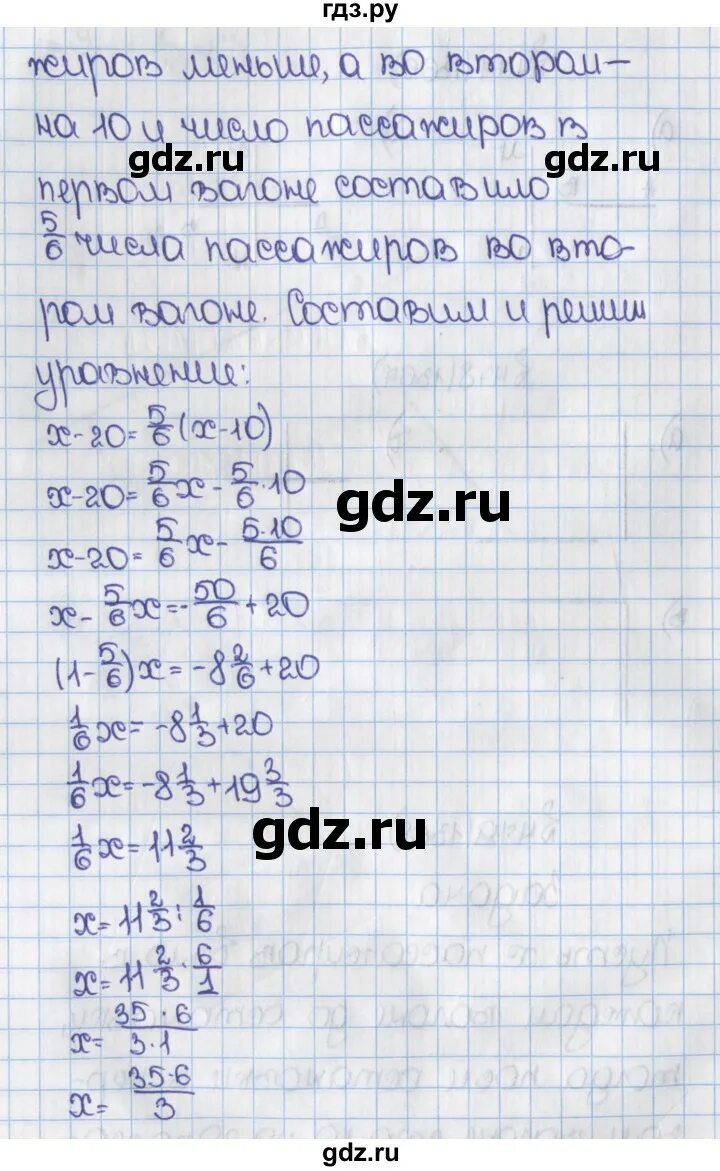 гдз.ру
жиров меньше, а во втором -
на 10 и число пассажиров в
gdz.ru
gdz.ru
первом вагоне составило
5/6 числа пассажиров во вто-
ром вагоне. Составим и решим
уравнение:
x-20=5/6(x-10)
x-20=5/6x-5/6·10
gdz.ru
x-20=5/6x-5·10/6
x-5/6x=-50/6+20
(1-5/6)x=-8 2/6+20
1/6x=-8 1/3+20
1/6x=-8 1/3+19 3/3
gdz.ru
1/6x=11 2/3
x=11 2/3:1/6
x=11 2/3·6/1
x=35·6/3·1
x=35·6/3
gdz.ru